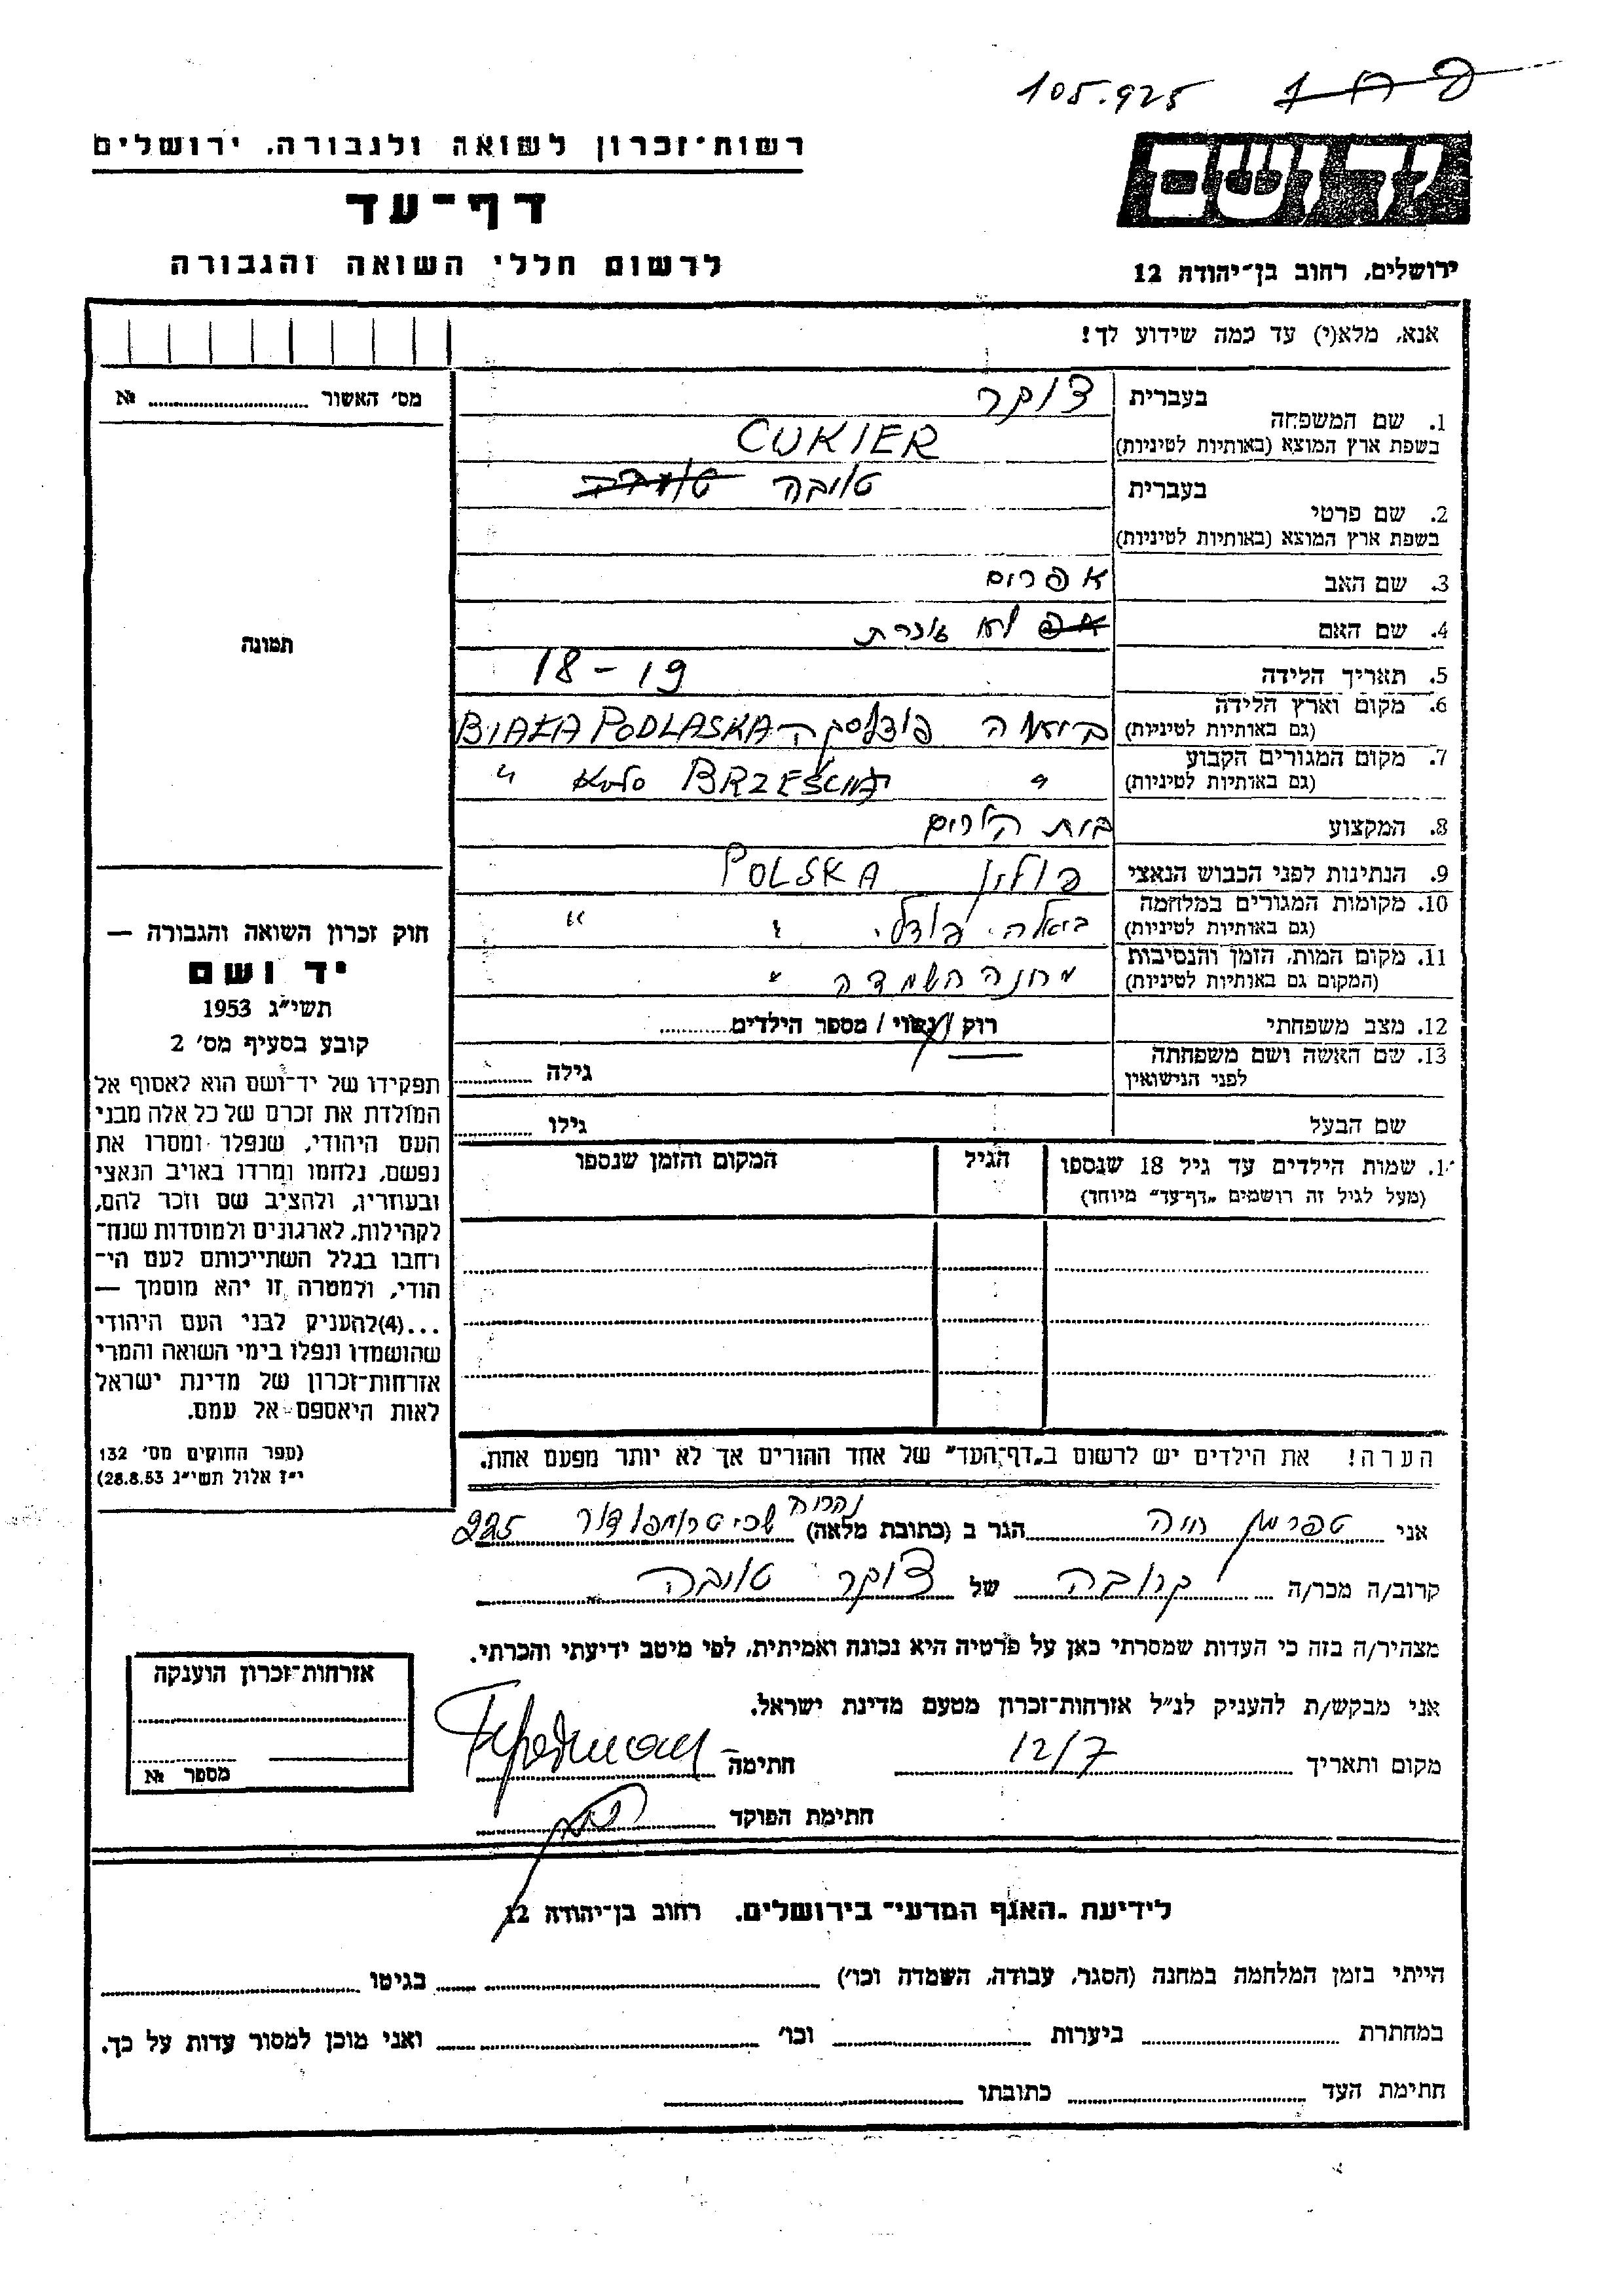 105.925
רשות־זכרון לשואה ולגבורה, ירושלים
דף־עד
לרשום חללי השואה והגבורה
יד ושם
ירושלים, רחוב בן־יהודה 12
אנא, מלא(י) עד כמה שידוע לך!
מס׳ האשור № 
תמונה
1. שם המשפחה בעברית צוקר
בשפת ארץ המוצא (באותיות לטיניות) CUKIER
2. שם פרטי בעברית טובה
בשפת ארץ המוצא (באותיות לטיניות)
3. שם האב אפרים
4. שם האם לא זוכרת
5. תאריך הלידה 18-19
6. מקום וארץ הלידה (גם באותיות לטיניות) ביאלה פודלסקה BIAŁA PODLASKA
7. מקום המגורים הקבוע (גם באותיות לטיניות) " BRZESKA "
8. המקצוע בית הורים
9. הנתינות לפני הכבוש הנאצי פולין POLSKA
10. מקומות המגורים במלחמה (גם באותיות לטיניות) ביאלה פודל. " "
11. מקום המות, הזמן והנסיבות (המקום גם באותיות לטיניות) מחנה השמדה "
12. מצב משפחתי רוק / נשוי / מספר הילדים
13. שם האשה ושם משפחתה לפני הנישואין גילה
שם הבעל גילו
1. שמות הילדים עד גיל 18 שנספו הגיל המקום והזמן שנספו
(מעל לגיל זה רושמים „דף־עד" מיוחד)
הערה! את הילדים יש לרשום ב„דף־העד" של אחד ההורים אך לא יותר מפעם אחת.
חוק זכרון השואה והגבורה —
יד ושם
תשי״ג 1953
קובע בסעיף מס׳ 2
תפקידו של יד־ושם הוא לאסוף אל
המולדת את זכרם של כל אלה מבני
העם היהודי, שנפלו ומסרו את
נפשם, נלחמו ומרדו באויב הנאצי
ובעוזריו, ולהציב שם וזכר להם,
לקהילות, לארגונים ולמוסדות שנח־
רחבו בגלל השתייכותם לעם הי־
הודי, ולמטרה זו יהא מוסמך —
...(4) להעניק לבני העם היהודי
שהושמדו ונפלו בימי השואה והמרי
אזרחות־זכרון של מדינת ישראל
לאות היאספם אל עמם.
(ספר החוקים מס׳ 132
י״ז אלול תשי״ג 28.8.53)
נהריה
אני טפרמן חיה הגר ב (כתובת מלאה) 225
קרוב/ה מכר/ה קרובה של צוקר טובה
מצהיר/ה בזה כי העדות שמסרתי כאן על פרטיה היא נכונה ואמיתית, לפי מיטב ידיעתי והכרתי.
אני מבקש/ת להעניק לנ״ל אזרחות־זכרון מטעם מדינת ישראל.
מקום ותאריך 12/7 חתימה
חתימת הפוקד
אזרחות־זכרון הוענקה
מספר №
לידיעת „האגף המדעי" בירושלים, רחוב בן־יהודה 12
הייתי בזמן המלחמה במחנה (הסגר, עבודה, השמדה וכו׳) בגיטו
במחתרת ביערות וכו׳ ואני מוכן למסור עדות על כך.
חתימת העד כתובתו